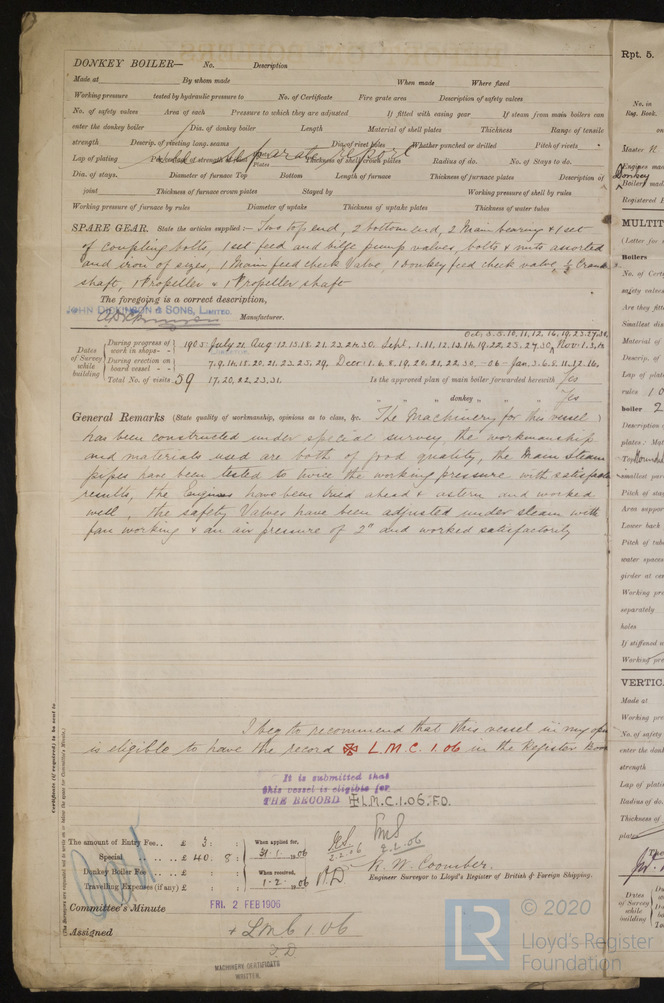 DONKEY BOILER— No. Description
Made at By whom made When made Where fixed
Working pressure tested by hydraulic pressure to No. of Certificate Fire grate area Description of safety valves
No. of safety valves Area of each Pressure to which they are adjusted If fitted with easing gear If steam from main boilers can
enter the donkey boiler Dia. of donkey boiler Length Material of shell plates Thickness Range of tensile
strength Descrip. of riveting long. seams Dia. of rivet holes Whether punched or drilled Pitch of rivets
see separate report
Lap of plating Per centage of strength of joint Plates Thickness of shell crown plates Radius of do. No. of Stays to do.
Dia. of stays. Diameter of furnace Top Bottom Length of furnace Thickness of furnace plates Description of
joint Thickness of furnace crown plates Stayed by Working pressure of shell by rules
Working pressure of furnace by rules Diameter of uptake Thickness of uptake plates Thickness of water tubes
SPARE GEAR. State the articles supplied:— Two top end, 2 bottom end, 2 Main bearing & 1 set
of coupling bolts, 1 set feed and bilge pump valves, bolts & nuts assorted
and iron of sizes, 1 Main feed check Valve, 1 donkey feed check valve, ½ Crank
shaft, 1 Propeller & 1 Propeller shaft
The foregoing is a correct description,
JOHN DICKINSON & SONS, LIMITED.
Manufacturer.
Oct. 3. 5. 10, 11, 12, 16, 19. 23. 27. 30,
Dates of Survey while building
During progress of work in shops - - 1905 July 21, Aug 12. 15. 18. 21, 23. 24. 30. Sept. 1. 11. 12. 13. 16. 19. 22. 25. 27. 30 Nov. 1. 3. 4
During erection on board vessel - - 7. 9. 14. 18. 20. 21. 23. 25. 29, Decr 1. 6. 8. 19. 20. 21. 22. 30, - 06 - Jan. 3. 6. 8. 11. 12. 16,
Total No. of visits 59 17, 20, 22, 23, 31. Is the approved plan of main boiler forwarded herewith Yes
" " " donkey " " " Yes
General Remarks (State quality of workmanship, opinions as to class, &c. The Machinery for this vessel
has been constructed under special survey, the workmanship
and materials used are both of good quality, the main steam
pipes have been tested to twice the working pressure with satisfactory
results, the Engines have been tried ahead & astern and worked
well, the safety Valves have been adjusted under steam with
fan working & an air pressure of 2" and worked satisfactorily
I beg to recommend that this vessel in my opin
is eligible to have the record ✠ L.M.C. 1.06 in the Register Book
It is submitted that
this vessel is eligible for
THE RECORD ✠ L.M.C. 1.06. F.D.
Certificate (if required) to be sent to
(The Surveyors are requested not to write on or below the space for Committee's Minute.)
The amount of Entry Fee.. £ 3 : :
Special .. .. .. .. £ 40 : 8 :
Donkey Boiler Fee .. .. £ : :
Travelling Expenses (if any) £ : :
When applied for,
31. 1. 1906
When received,
1. 2. 1906
2.2.06
2.2.06
R. W. Coomber.
Engineer Surveyor to Lloyd's Register of British & Foreign Shipping.
Committee's Minute FRI. 2 FEB 1906
Assigned + L M C 1. 06
F. D
MACHINERY CERTIFICATE
WRITTEN.
Rpt. 5.
No. in
Reg. Book.
Master
Engines mad
Donkey
Boilers mad
Registered H
MULTIT
(Letter for
Boilers
No. of Certi
safety valves
Are they fitt
Smallest dis
Material of
Descrip. of
Lap of plate
rules
boiler 2
Description
plates: Mat
Top
smallest par
Pitch of stay
Area suppor
Lower back
Pitch of tub
water spaces
girder at cen
Working pre
separately
holes
If stiffened w
Working pre
VERTICA
Made at
Working pre
No. of safety
enter the donk
strength
Lap of plati
Radius of do.
Thickness of
plates
Dates
of Survey
while
building
LR
© 2020
Lloyd's Register
Foundation